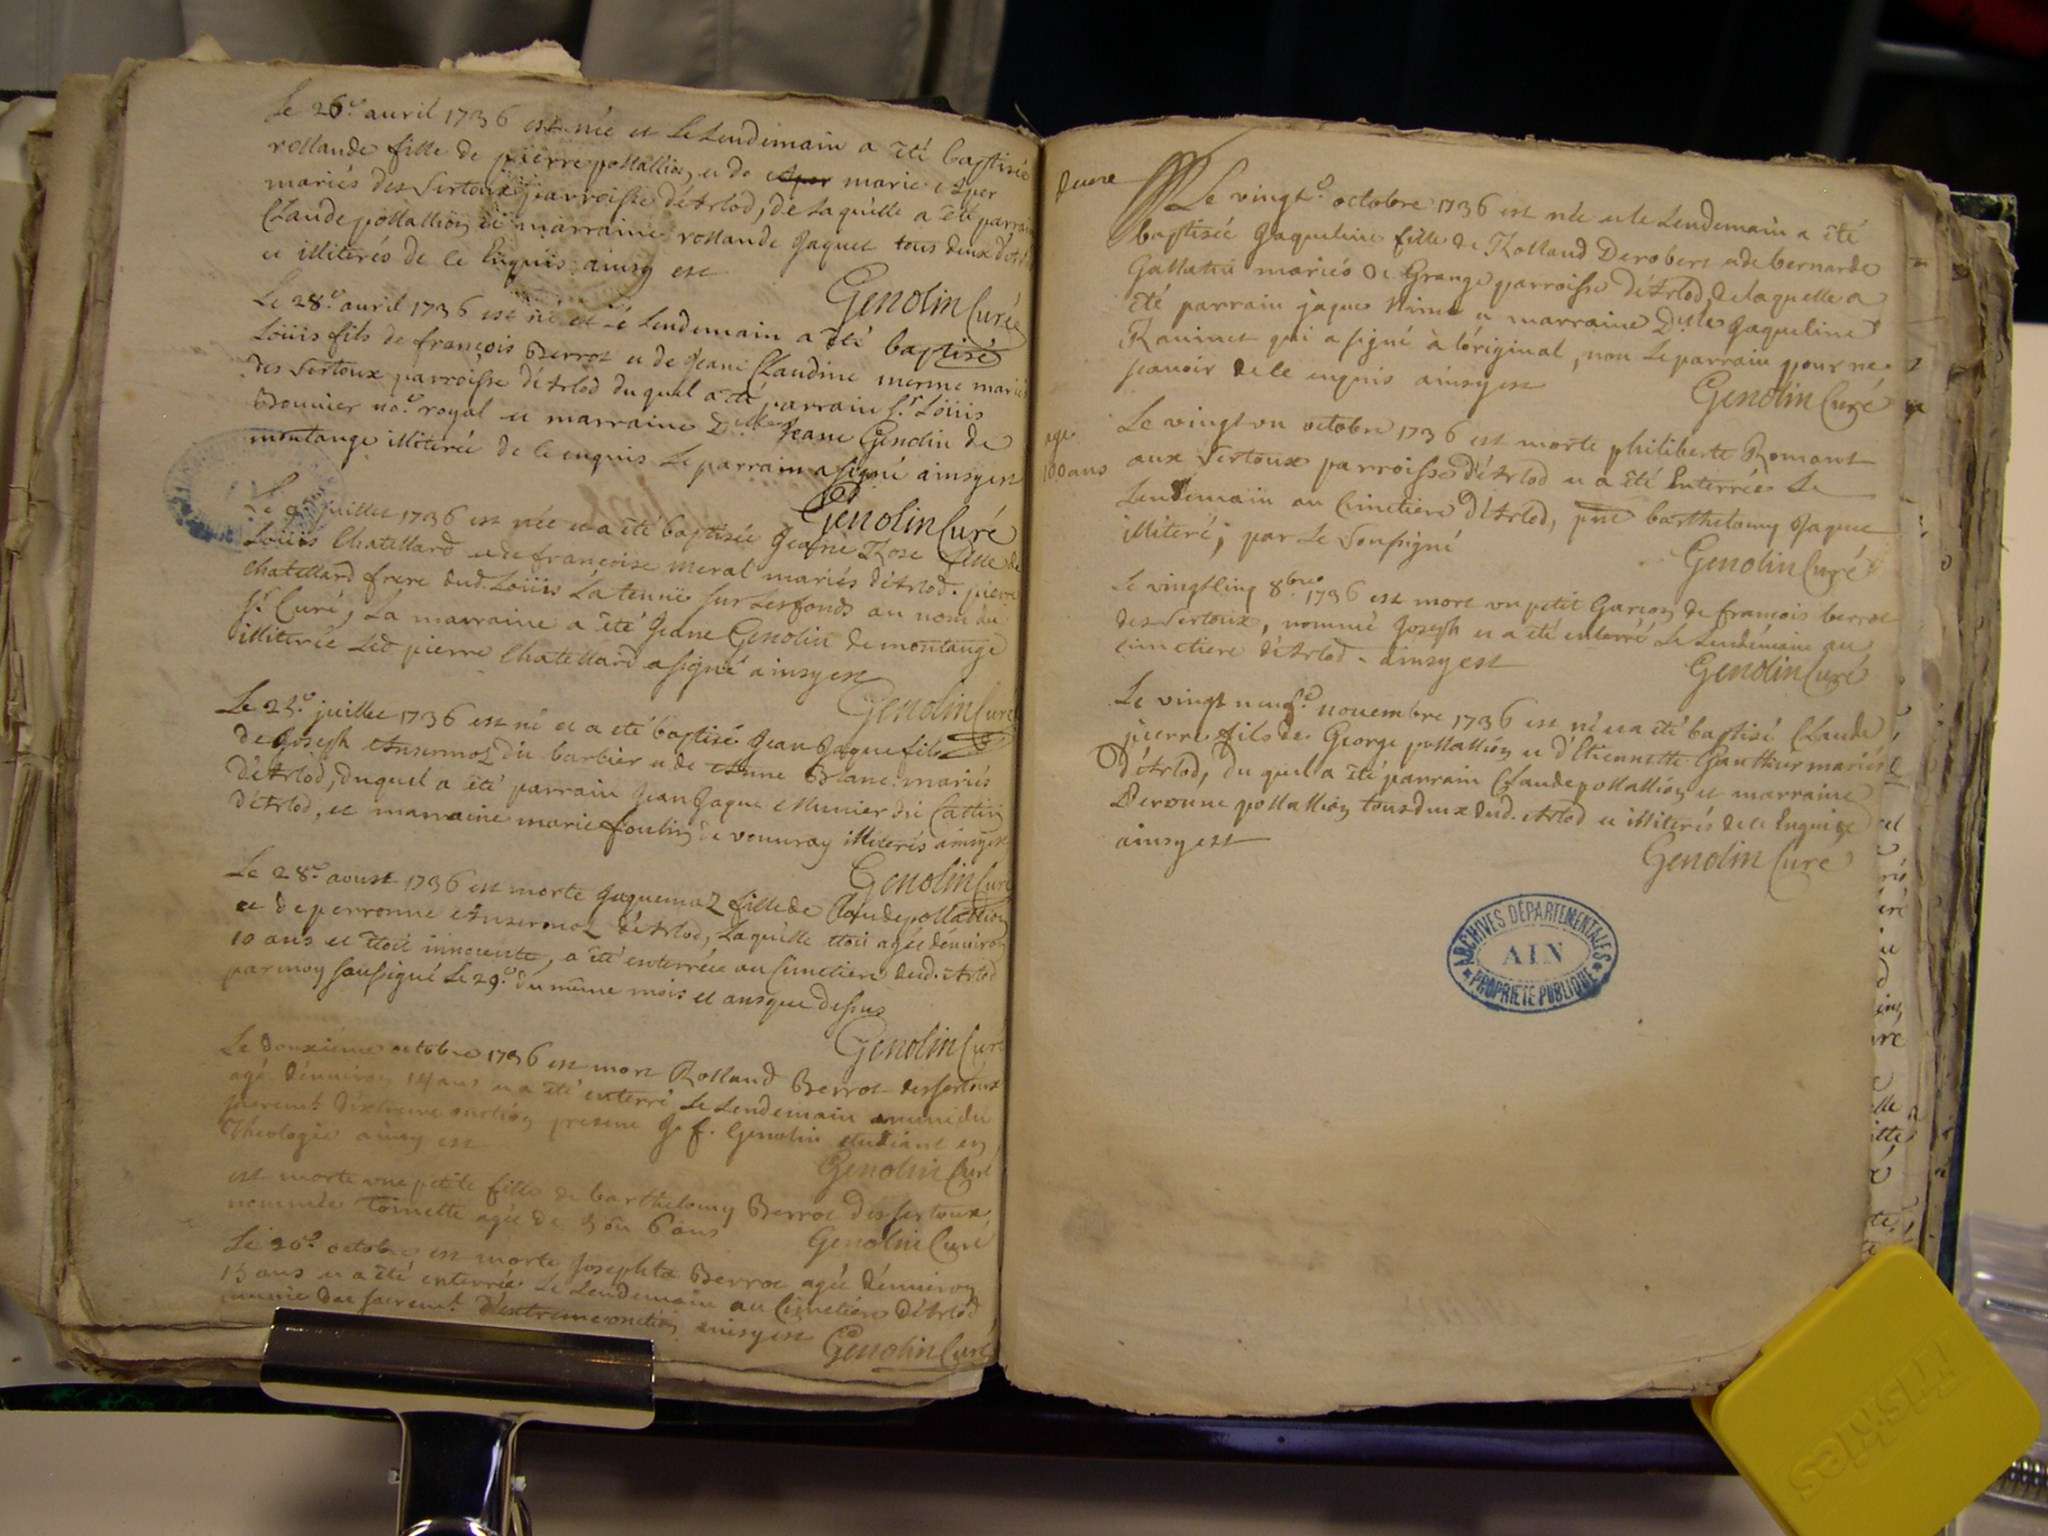 Le 26.e auril 1736 est née et Le Lendemain a été baptisée
rollande fille de pierre pollallion et de marie Aper
mariés des Sertoux parroisse d'Arlod, de laquelle a été parrain
Claude pollallion et marraine rollande Jaquet tous deux
et illiterés de ce Enquis ainsy est
Genolin Curé
Le 28.e auril 1736 est né et Le Lendemain a été baptisé
Loüis fils de françois Berrot et de Jeane Claudine merme mariés
des Sertoux parroisse d'Arlod duquel a été parrain S.r Loüis
Bonnier no.e royal et marraine Jeane Genolin de
montange illiterée de ce enquis Le parrain a signé ainsy est
Genolin Curé
Le juillet 1736 est née et a été baptisée Jeane Rose fille de
Loüis Chatellard et de françoise meral mariés d'Arlod. pierre
Chatellard frere dud. Loüis L'a tenuë sur Les fonds au nom du
S.r Curé, La marraine a été Jeane Genolin de montange
illiterée Led pierre Chatellard a signé ainsy est
Genolin Curé
Le 25.e juillet 1736 est né et a été baptisé Jean Jaque fils
de Joseph Ansermoz dit barbier et de Anne Blanc mariés
d'Arlod, duquel a été parrain Jean Jaque Munier dit Cattin
d'Arlod, et marraine marie foulin de vouuray illiterés ainsy est
Genolin Curé
Le 28.e aoust 1736 est morte Jaquemaz fille de Claude pollallion
et de perronne Ansermoz d'Arlod, Laquelle étoit agée d'enuiron
10 ans et étoit innocente, a été enterrée au Cimetiere dud. Arlod
par moy soussigné Le 29.e du même mois et an que dessus
Genolin Curé
Le douxieme octobre 1736 est mort Rolland Berrot des sertoux
agé d'enuiron 14 ans et a été enterré Le Lendemain muni du
sacrem.t d'extreme onction present J. f. Genolin etudiant en
Theologie ainsy est
Genolin Curé
est morte une petite fille de barthelemy Berrot des sertoux
nommée Toinette agée de 5 ou 6 ans
Genolin Curé
Le 20.e octobre est morte Josephte Berrot agée d'enuiron
15 ans et a été enterrée Le Lendemain au Cimetiere d'Arlod
munie des sacrem.t d'extreme onction ainsy est
Genolin Curé
Le vingt.e octobre 1736 est née et le Lendemain a été
baptisée Jaqueline fille de Rolland Derobert et de bernarde
Gallatin mariés De Grange parroisse d'Arlod, de laquelle a
été parrain jaque et marraine D.lle Jaqueline
Rauinet qui a signé à l'original, non Le parrain pour ne
scauoir de ce enquis ainsy est
Genolin Curé
age
100 ans
Le vingt un octobre 1736 est morte philiberte Romant
aux Sertoux parroisse d'Arlod et a été Enterrée Le
Lendemain au Cimetiere d'Arlod, pnt barthelemy Jaque
illiteré, par Le Soussigné
Genolin Curé
Le vingt cinq 8.bre 1736 est mort un petit Garçon de françois berrot
des Sertoux, nommé Joseph et a été enterré Le Lendemain au
cimetiere d'Arlod. ainsy est
Genolin Curé
Le vingt neuf.e nouembre 1736 est né et a été baptisé Claude
pierre fils de George pollallion et d'Etiennette Gauthier mariés
d'Arlod, du quel a été parrain Claude pollallion et marraine
Peronne pollallion tous deux dud. Arlod et illiterés de ce Enquis
ainsy est
Genolin Curé
ARCHIVES DÉPARTEMENTALES
AIN
PROPRIÉTÉ PUBLIQUE